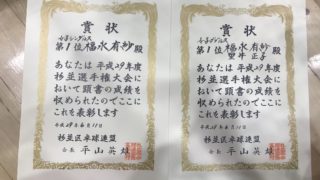 賞状
女子シングルス
第1位 福永有紗 殿
あなたは平成29年度
杉並選手権大会に
おいて頭書の成績を
収められたのでここに
これを表彰します
平成29年6月11日
杉並区卓球連盟
会長 平山英雄
賞状
女子ダブルス
第1位 福永有紗 殿
正子
あなたは平成29年度
杉並選手権大会に
おいて頭書の成績を
収められたのでここに
これを表彰します
平成29年6月11日
杉並区卓球連盟
会長 平山英雄